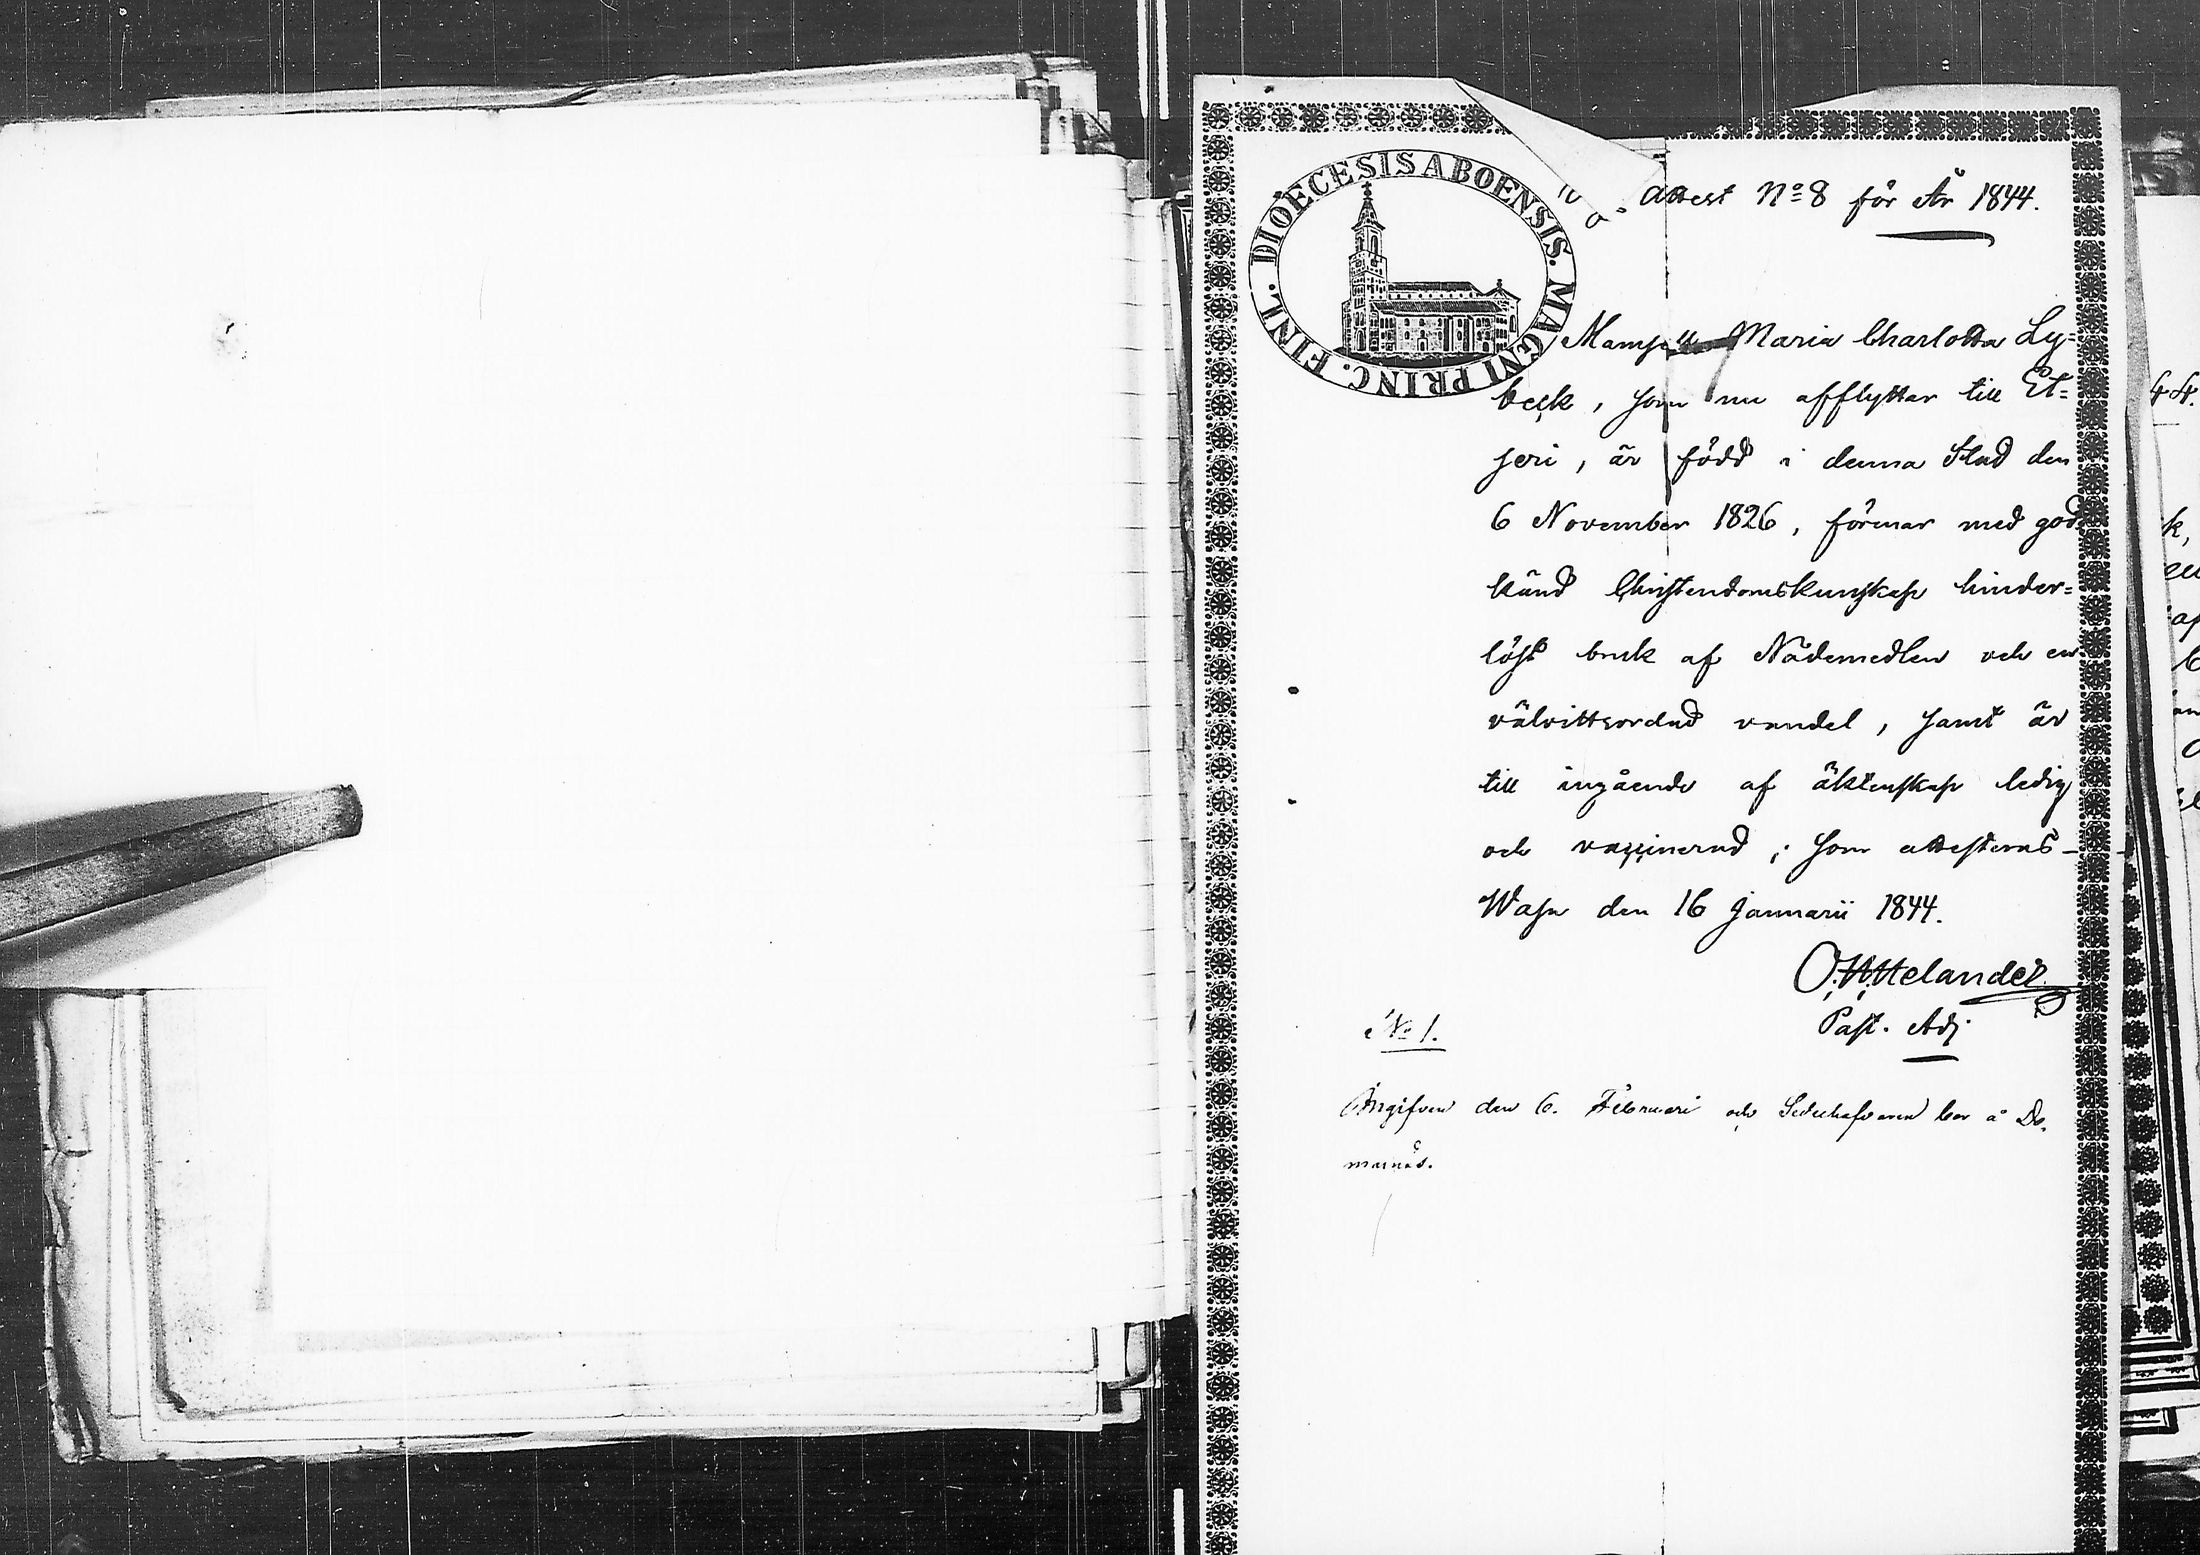 DIOECESIS ABOENSIS. MAGNI PRINC. FINL.
Attest No 8 för År 1844.
Mamsell Maria Charlotta Ly=
beck, som nu afflyttar till Et=
seri, är född i denna Stad den
6 November 1826, förenar med god
känd Christendomskunskap hinder=
löst bruk af Nådemedlen och en
välvittsordad vandel, samt är
till ingående af äktenskap ledig
och vaccinerad; som attesteras_
Wasa den 16 Januarii 1844.
O. W. Helander
Past. Adj.
No 1.
Angifven den 6. Februari och bor å Do-
marnäs.